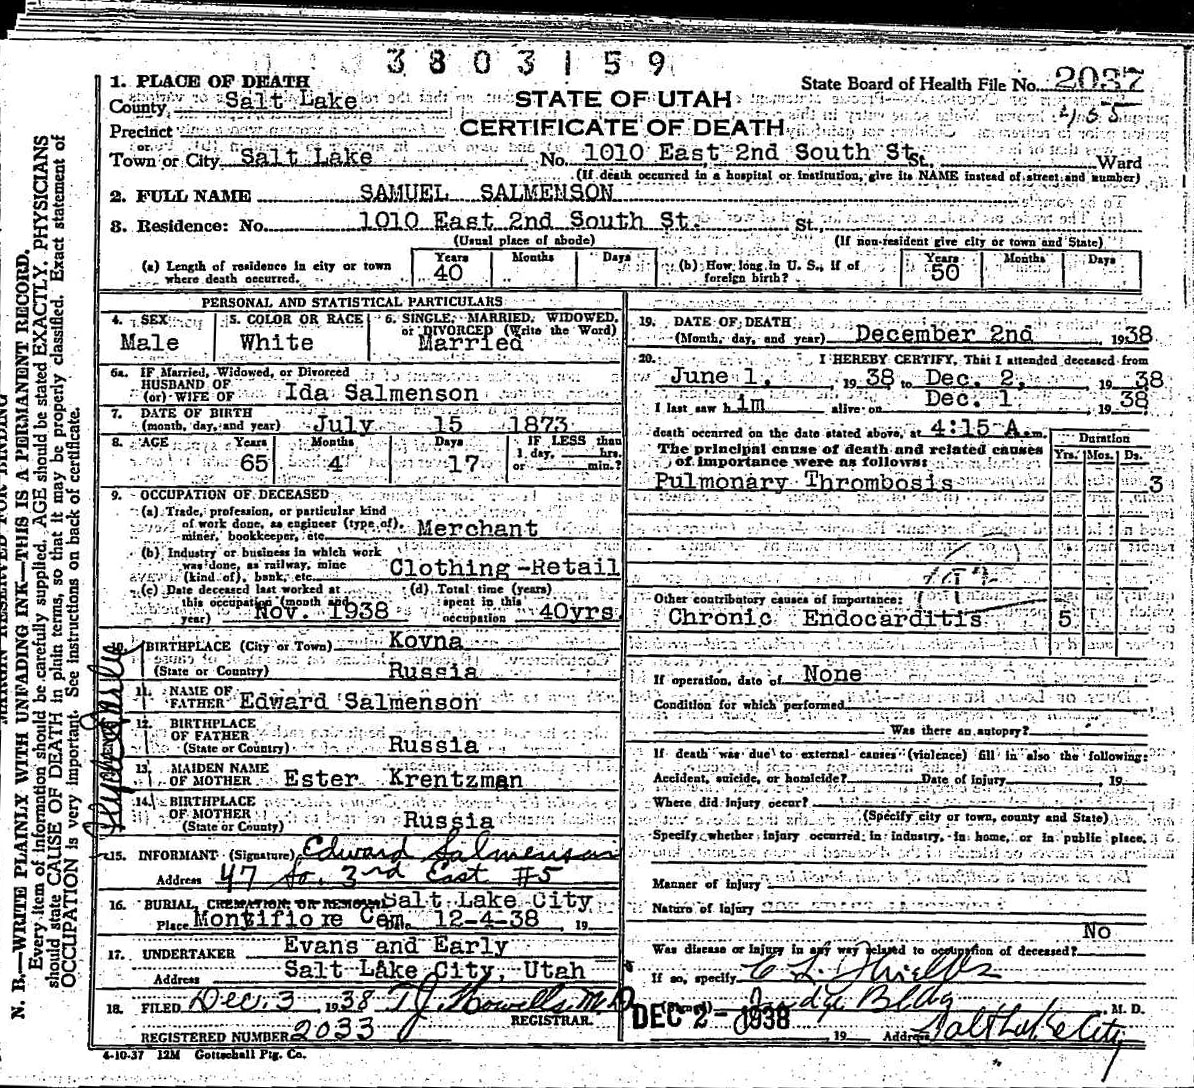 3803159
State Board of Health File No. 2037
1. PLACE OF DEATH
County Salt Lake
STATE OF UTAH
CERTIFICATE OF DEATH
Precinct
or
Town or City Salt Lake No. 1010 East 2nd South St. St. Ward
(If death occurred in a hospital or institution, give its NAME instead of street and number)
2. FULL NAME SAMUEL SALMENSON
3. Residence: No. 1010 East 2nd South St. St.
(Usual place of abode) (If non-resident give city or town and State)
(a) Length of residence in city or town where death occurred. Years 40 Months Days
(b) How long in U. S., if of foreign birth? Years 50 Months Days
PERSONAL AND STATISTICAL PARTICULARS
4. SEX Male
5. COLOR OR RACE White
6. SINGLE, MARRIED, WIDOWED, or DIVORCED (Write the Word) Married
6a. IF Married, Widowed, or Divorced
HUSBAND OF
(or) WIFE OF Ida Salmenson
7. DATE OF BIRTH
(month, day, and year) July 15 1873
8. AGE Years 65 Months 4 Days 17 IF LESS than 1 day, hrs. or min.?
9. OCCUPATION OF DECEASED
(a) Trade, profession, or particular kind
of work done, as engineer (type of),
miner, bookkeeper, etc. Merchant
(b) Industry or business in which work
was done, as railway, mine
(kind of), bank, etc. Clothing-Retail
(c) Date deceased last worked at
this occupation (month and
year) Nov. 1938
(d) Total time (years)
spent in this
occupation 40yrs.
10. BIRTHPLACE (City or Town) Kovna
(State or Country) Russia
11. NAME OF
FATHER Edward Salmenson
12. BIRTHPLACE
OF FATHER
(State or Country) Russia
13. MAIDEN NAME
OF MOTHER Ester Krentzman
14. BIRTHPLACE
OF MOTHER
(State or County) Russia
15. INFORMANT (Signature) Edward Salmenson
Address 47 So. 3rd East #5
16. BURIAL, CREMATION, OR REMOVAL Salt Lake City
Place Montifiore Cem. Date 12-4-38 19
17. UNDERTAKER Evans and Early
Address Salt Lake City, Utah
18. FILED Dec. 3 1938 T J Howells M.D.
REGISTRAR.
REGISTERED NUMBER 2033
4-10-37 12M Gottschall Ptg. Co.
19. DATE OF DEATH
(Month, day, and year) December 2nd 1938
20. I HEREBY CERTIFY, That I attended deceased from
June 1, 1938 to Dec. 2, 1938
I last saw him alive on Dec. 1 1938
death occurred on the date stated above, at 4:15 A.m.
The principal cause of death and related causes
of importance were as follows:
Duration
Yrs. Mos. Ds.
Pulmonary Thrombosis 3
Other contributory causes of importance:
Chronic Endocarditis 5
If operation, date of None
Condition for which performed
Was there an autopsy?
If death was due to external causes (violence) fill in also the following:
Accident, suicide, or homicide? Date of injury 19
Where did injury occur?
(Specify city or town, county and State)
Specify whether injury occurred in industry, in home, or in public place.
Manner of injury
Nature of injury
Was disease or injury in any way related to occupation of deceased? No
If so, specify
(Signed) M. D.
DEC 2- 1938 19 Address Salt Lake City
MARGIN RESERVED FOR BINDING
N. B.—WRITE PLAINLY WITH UNFADING INK—THIS IS A PERMANENT RECORD.
Every item of information should be carefully supplied. AGE should be stated EXACTLY. PHYSICIANS
should state CAUSE OF DEATH in plain terms, so that it may be properly classified. Exact statement of
OCCUPATION is very important. See instructions on back of certificate.